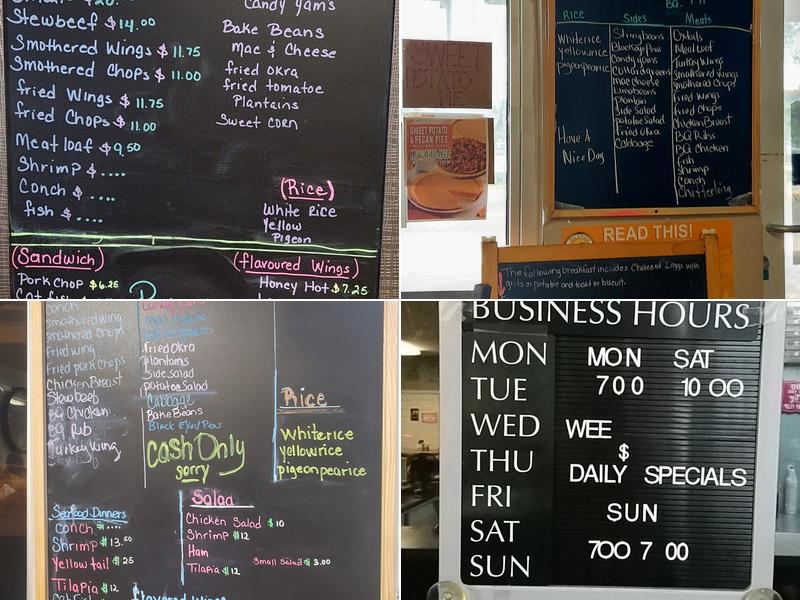 Stewbeef $14.00
Smothered Wings $11.75
Smothered Chops $11.00
fried Wings $11.75
fried Chops $11.00
Meat loaf $9.50
Shrimp $....
Conch $....
fish $....
Candy Yam's
Bake Beans
Mac & Cheese
fried okra
fried tomatoe
Plantains
Sweet corn
(Rice)
White Rice
Yellow
Pigeon
(Sandwich)
Pork chop $6.25
(flavoured Wings)
Honey Hot $7.25
SWEET
POTATO
PIE
SWEET POTATO
& PECAN PIES
Rice
Whiterice
yellowrice
pigeonpearice
Have A
Nice Day
Sides
Stringbeans
Blackeye Peas
Candy yams
Collard greens
mac cheese
Limabeans
Plantain
Side Salad
potatoe Salad
Fried Okra
Cabbage
Meats
Oxtails
Meat Loaf
Turkey Wings
Smothered Wings
Smothered Chops
Fried Wings
Fried Chops
Chicken Breast
BQ Ribs
BQ Chicken
Fish
Shrimp
Conch
Chitterling
READ THIS!
The following breakfast includes Choice of 2 eggs with
grits or potatoe and toast or biscuit.
Conch
smothered wing
smothered Chops
Fried wing
Fried pork Chops
Chicken Breast
Stew beef
BQ Chicken
BQ Rib
Turkey Wing
fried Okra
Plantains
Side salad
potatoe Salad
Cabbage
Bake Beans
Black Eyed Peas
Cash Only
sorry
Rice
White rice
yellow rice
pigeonpearice
Seafood Dinners
Conch $....
Shrimp $13.50
Yellow tail $25
Tilapia $12
Salad
Chicken Salad $10
Shrimp $12
Ham
Tilapia $12
Small Salad $3.00
flavored Wings
BUSINESS HOURS
MON
TUE
WED
THU
FRI
SAT
SUN
MON SAT
7 00 10 00
WEE
$
DAILY SPECIALS
SUN
700 7 00